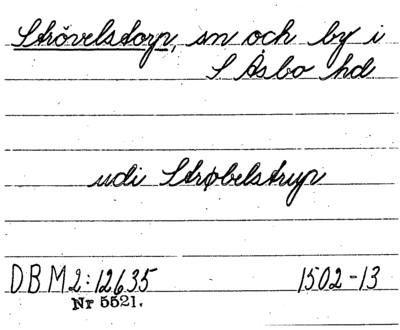 Strövelstorp, sn och by i
S Åsbo hd
udi Strøbelstrup
DBM2:12635 1502-13
Nr 5521.